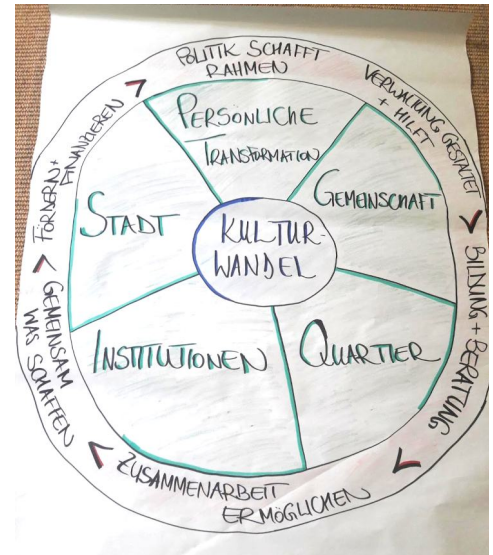 POLITIK SCHAFFT
RAHMEN
VERWALTUNG GESTALTET
+ HILFT
BILDUNG + BERATUNG
ZUSAMMENARBEIT
ERMÖGLICHEN
GEMEINSAM
WAS SCHAFFEN
FÖRDERN +
FINANZIEREN
PERSÖNLICHE
TRANSFORMATION
GEMEINSCHAFT
QUARTIER
INSTITUTIONEN
STADT
KULTUR-
WANDEL